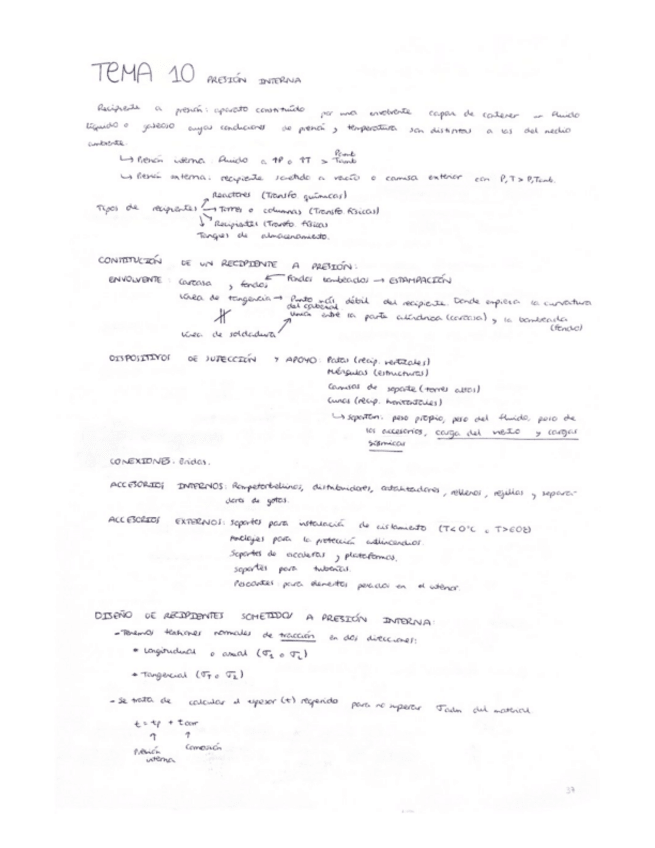 TEMA 10 PRESIÓN INTERNA
Recipiente a presión: aparato constituido por una envolvente capaz de contener un fluido
líquido o gaseoso cuyas condiciones de presión y temperatura son distintas a las del medio
ambiente.
↳ Presión interna: fluido a ↑P o ↑T > Pamb Tamb
↳ Presión externa: recipiente sometido a vacío o camisa exterior con P, T > P, Tamb.
Reactores (Transfo químicas)
Tipos de recipientes → Torres o columnas (Transfo físicas)
Recipientes (Transfo. físicas
Tanques de almacenamiento.
CONTITUCIÓN DE UN RECIPIENTE A PRESIÓN:
ENVOLVENTE: carcasa y fondos ← Fondos bombeados → ESTAMPACIÓN
Línea de tangencia → Punto más débil del recipiente. Donde empieza la curvatura
del cabezal
Unión entre la parte cilíndrica (carcasa) y la bombeada
(fondo)
Línea de soldadura
DISPOSITIVOS DE SUJECCIÓN Y APOYO: Patas (recip. verticales)
Ménsulas (estructuras)
Camisas de soporte (torres altas)
Cunas (recip. horizontales)
↳ soportan: peso propio, peso del fluido, peso de
los accesorios, carga del viento y cargas
sísmicas
CONEXIONES: Bridas.
ACCESORIOS INTERNOS: Rompetorbellinos, distribuidores, catalizadores, rellenos, rejillas y separa-
dores de gotas.
ACCESORIOS EXTERNOS: Soportes para instalación de aislamiento (T<0°C o T>60°)
Anclajes para la protección antiincendios.
Soportes de escaleras y plataformas.
soportes para tuberías.
Pescantes para elementos pesados en el interior.
DISEÑO DE RECIPIENTES SOMETIDOS A PRESIÓN INTERNA:
- Tenemos tensiones normales de tracción en dos direcciones:
* Longitudinal o axial (σ1 o σL)
* Tangencial (σT o σ2)
- Se trata de calcular el espesor (t) requerido para no superar σadm del material
t = tp + tcorr
Presión interna
Corrosión
37